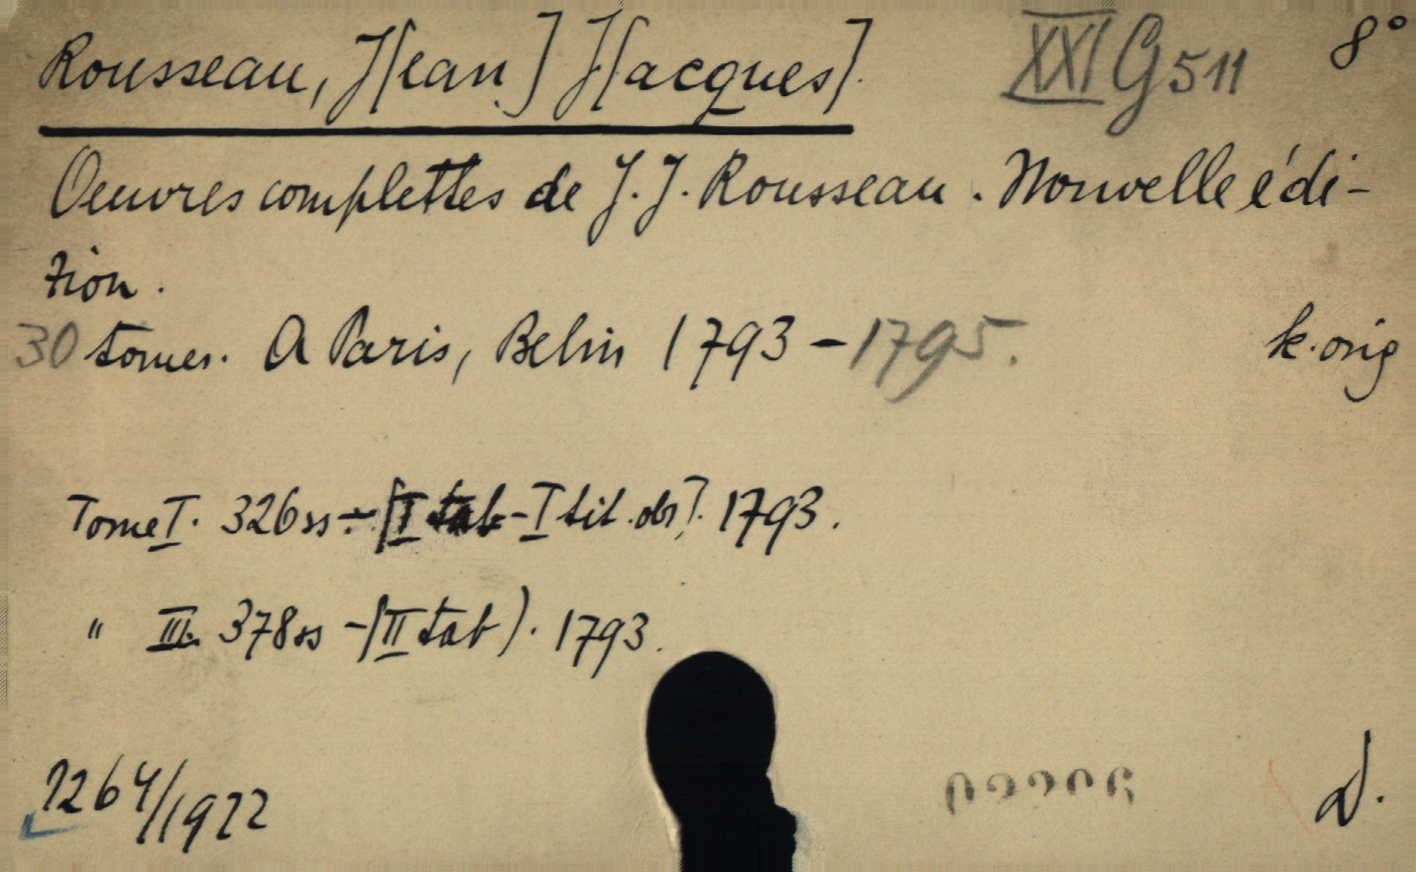 Rousseau, J[ean] J[acques]. XXI G 511 8°
Oeuvres complettes de J. J. Rousseau. Nouvelle édi-
tion.
30 tomes. A Paris, Belin 1793-1795. k. orig
Tome I. 326 ss - [I tab - I tit. ds]. 1793.
" III. 378 ss - [II tab). 1793.
1264/1922 D.